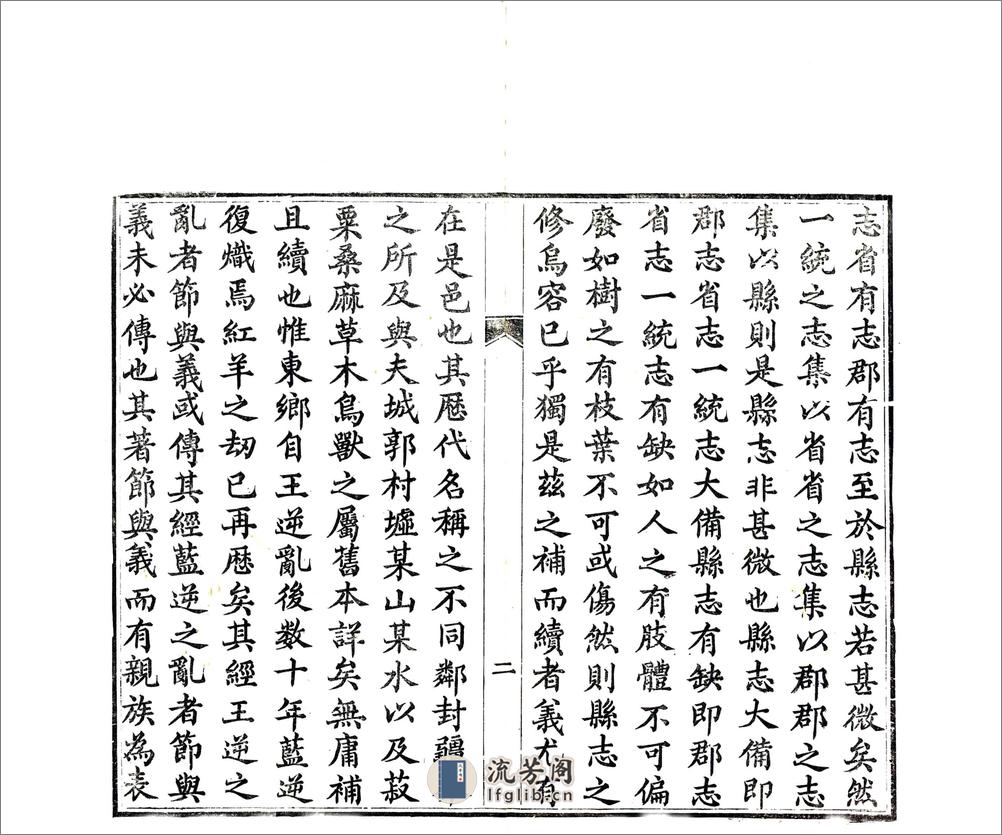 志省有志郡有志至於縣志若甚微矣然
一統之志集以省省之志集以郡郡之志
集以縣則是縣志非甚微也縣志大備即
郡志省志一統志大備縣志有缺即郡志
省志一統志有缺如人之有肢體不可偏
廢如樹之有枝葉不可或傷然則縣志之
修烏容已乎獨是茲之補而續者義尤有
二
在是邑也其歷代名稱之不同鄰封疆
之所及與夫城郭村墟某山某水以及菽
粟桑麻草木鳥獸之屬舊本詳矣無庸補
且續也惟東鄉自王逆亂後数十年藍逆
復熾焉紅羊之刼已再歷矣其經王逆之
亂者節與義或傳其經藍逆之亂者節與
義未必傳也其著節與義而有親族為表
流芳阁
lfglib.cn